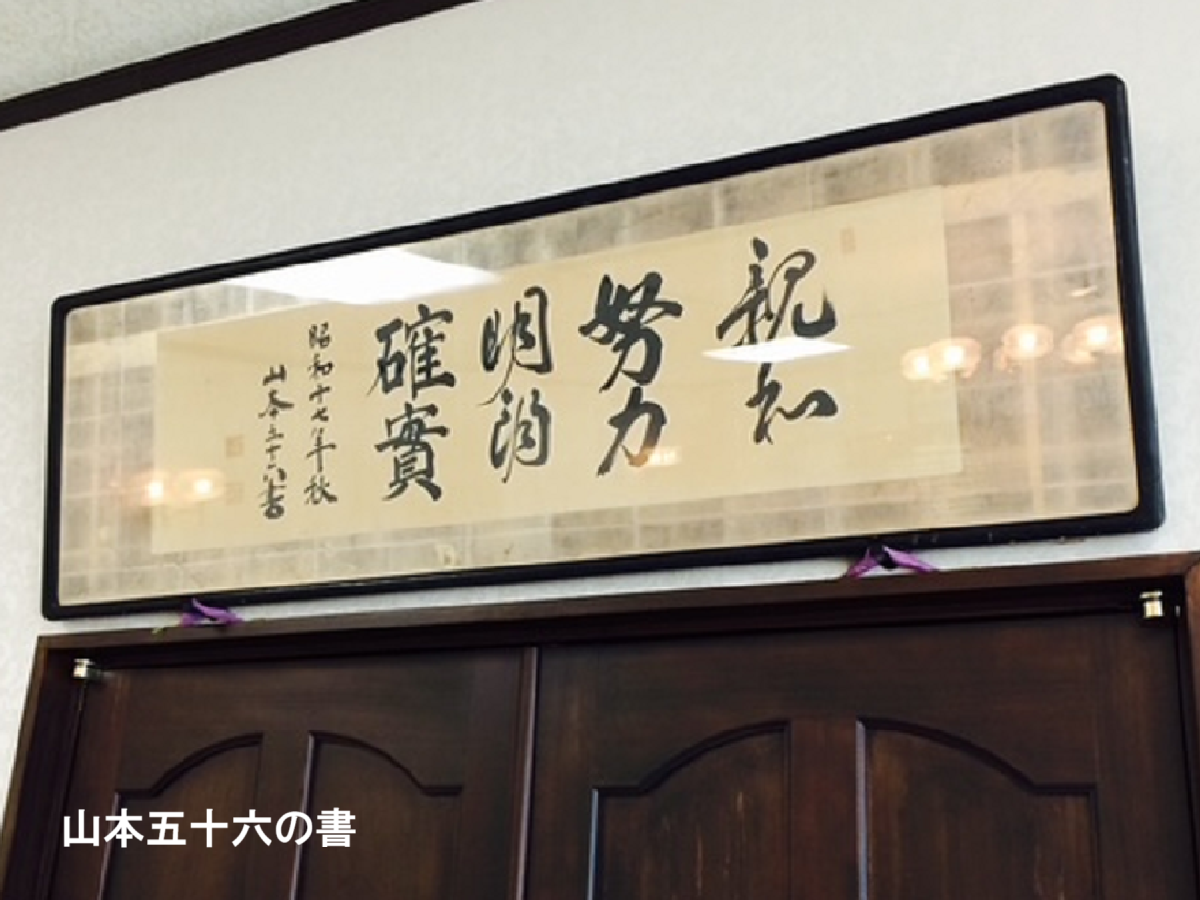 親和
努力
明朗
確實
昭和十七年秋
山本五十六書
山本五十六の書